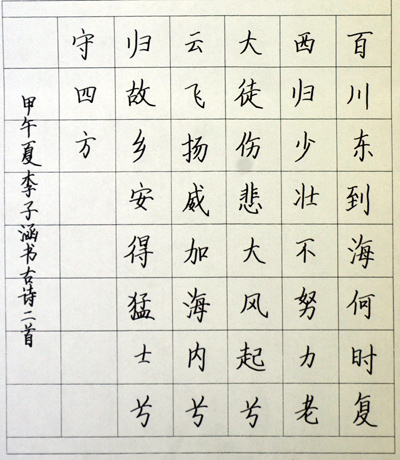 百川东到海何时复
西归少壮不努力老
大徒伤悲大风起兮
云飞扬威加海内兮
归故乡安得猛士兮
守四方
甲午夏李子涵书古诗二首